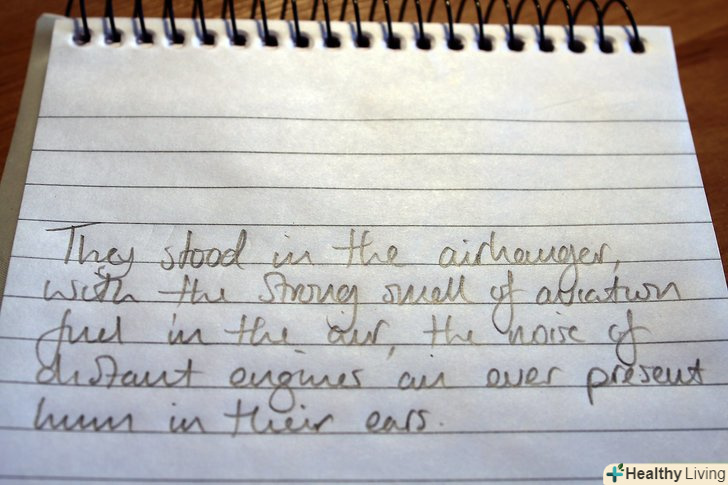 They stood in the airhanger,
with the strong smell of aviation
fuel in the air, the noise of
distant engines an ever present
hum in their ears.
Healthy Living